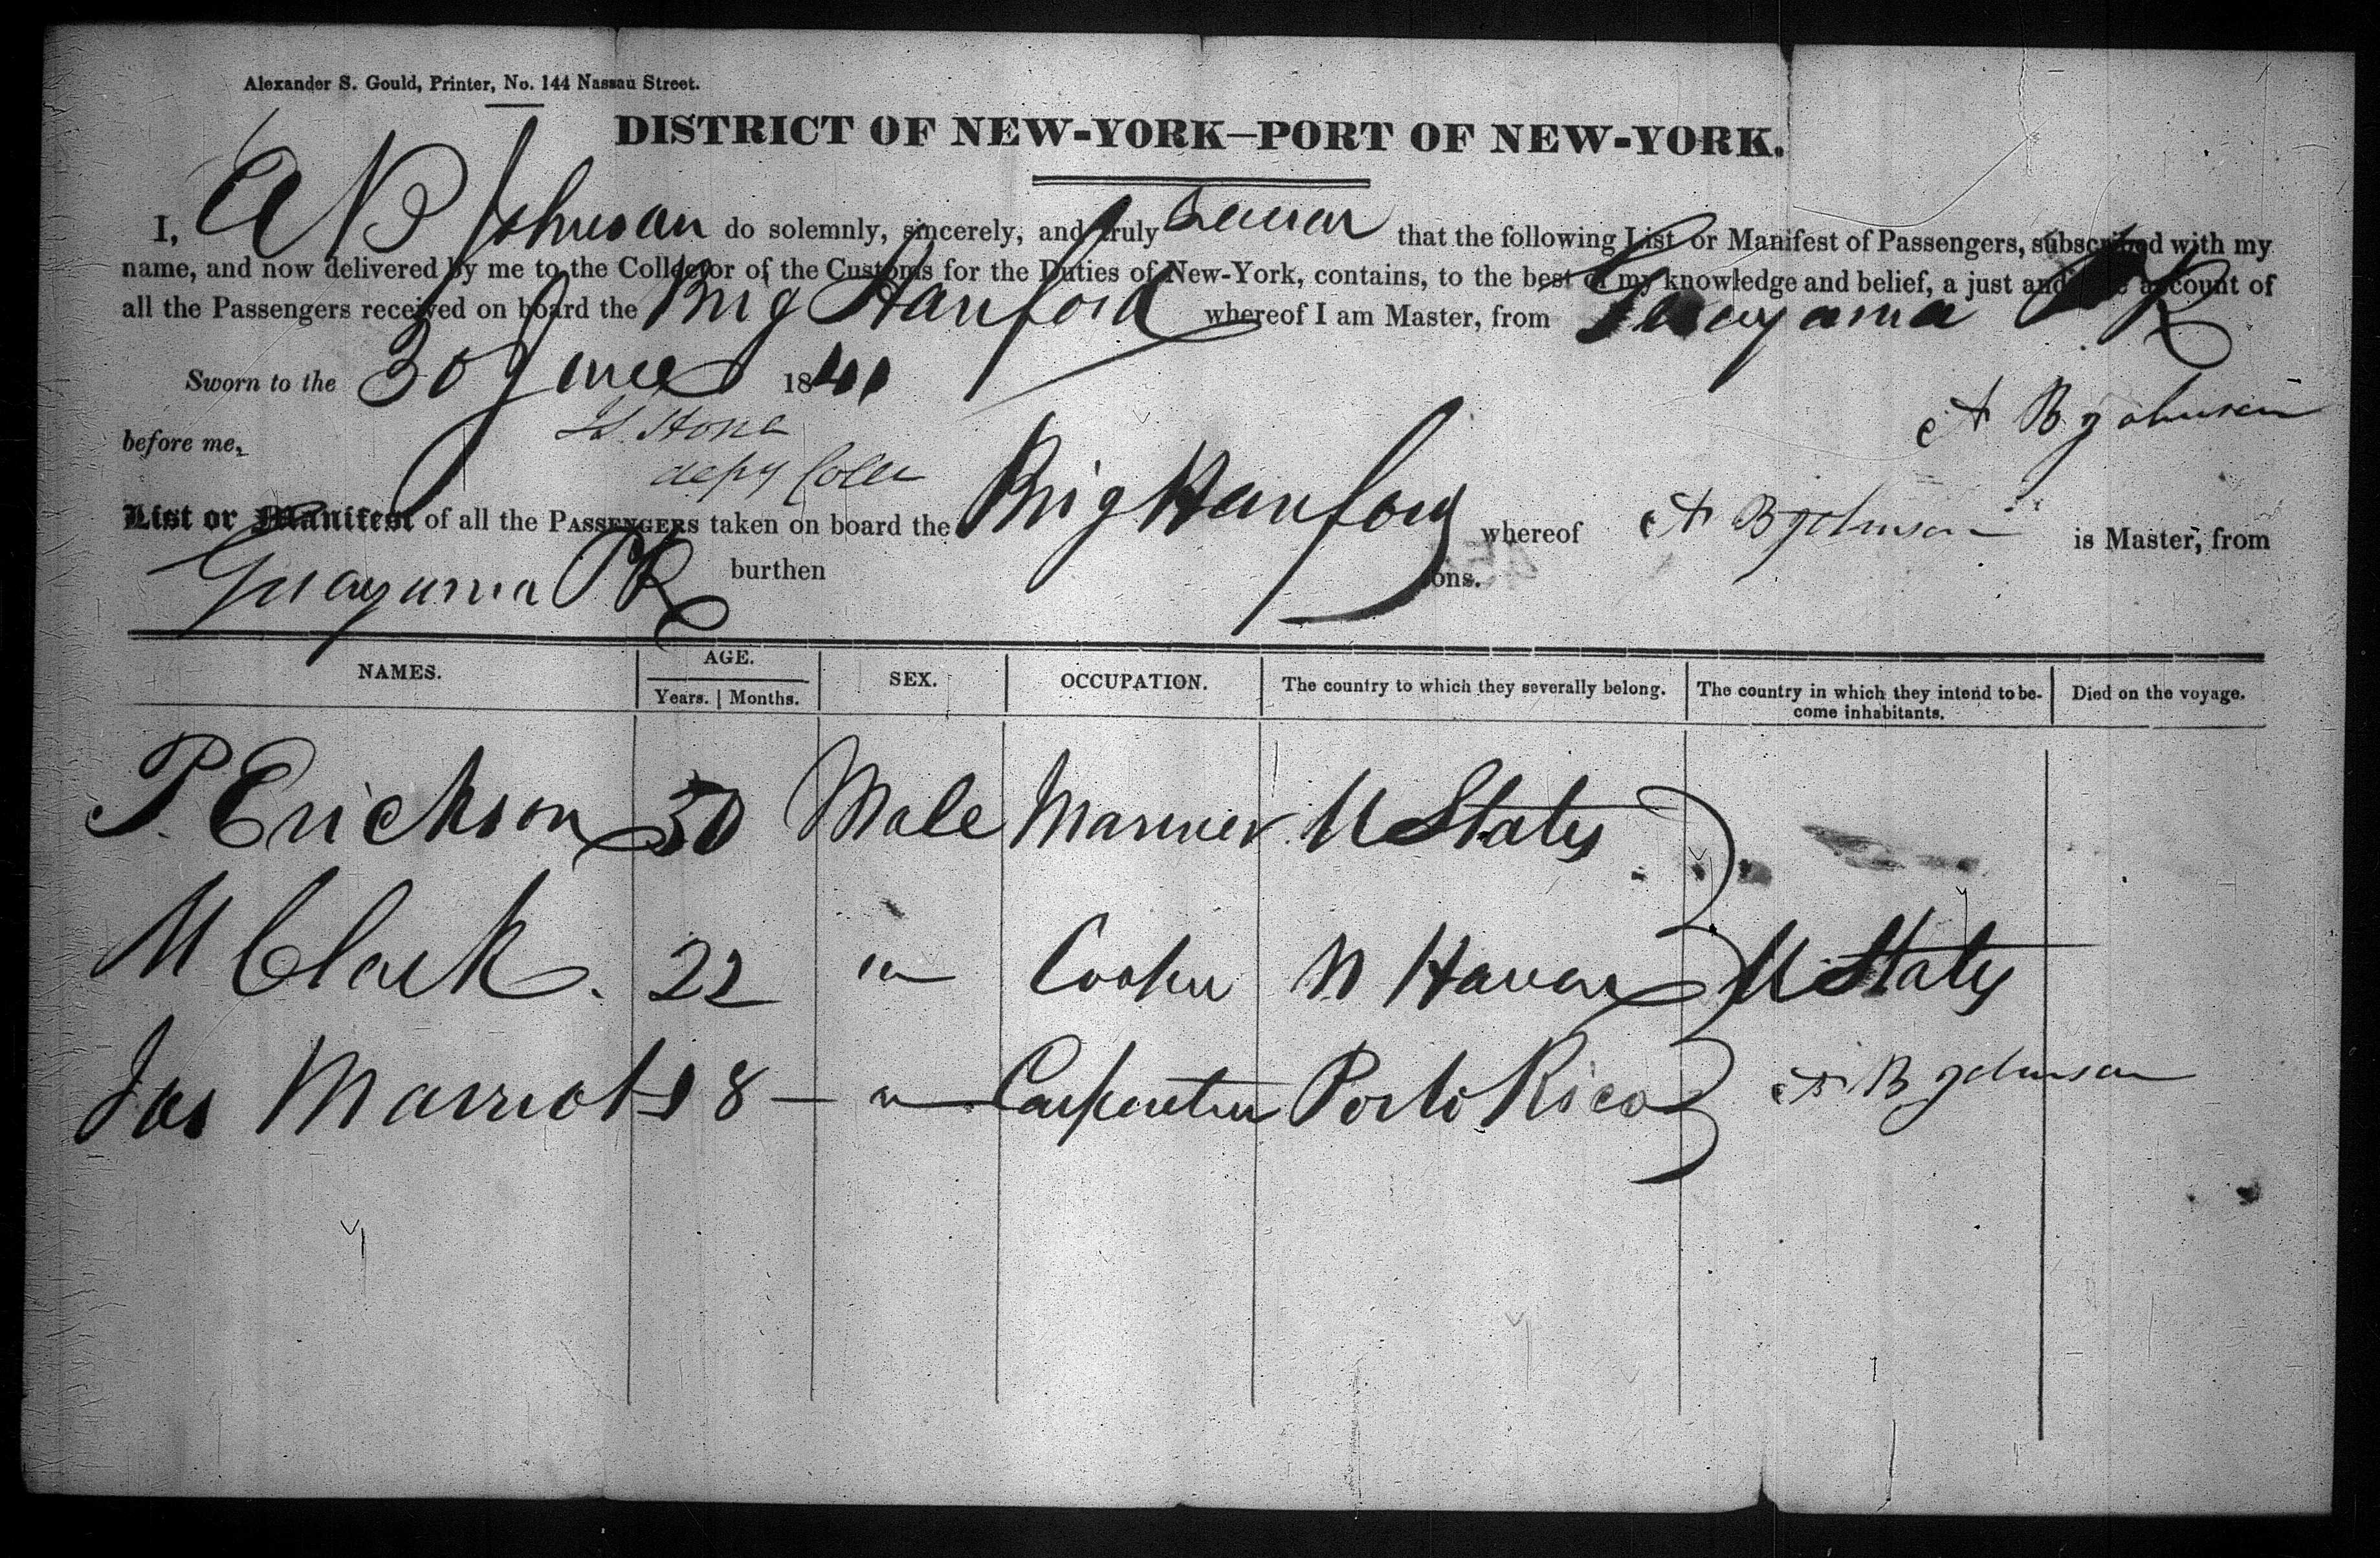 Alexander S. Gould, Printer, No. 144 Nassau Street.
DISTRICT OF NEW-YORK—PORT OF NEW-YORK.
I, A B Johnson do solemnly, sincerely, and truly swear that the following List or Manifest of Passengers, subscribed with my
name, and now delivered by me to the Collector of the Customs for the Duties of New-York, contains, to the best of my knowledge and belief, a just and true account of
all the Passengers received on board the Brig Hanford whereof I am Master, from Guayama P R
Sworn to the 30 June 1841
A B Johnson
before me,
depy Coller
List or Manifest of all the PASSENGERS taken on board the Brig Hanford whereof A B Johnson is Master, from
Guayama P R burthen tons.
NAMES. AGE. SEX. OCCUPATION. The country to which they severally belong. The country in which they intend to become inhabitants. Died on the voyage.
Years. Months.
P. Erickson 30 Male Mariner U States
M Clark. 22 " N Haven U States
Jas Marriot 18 — " — Carpenter Porto Rico A B Johnson